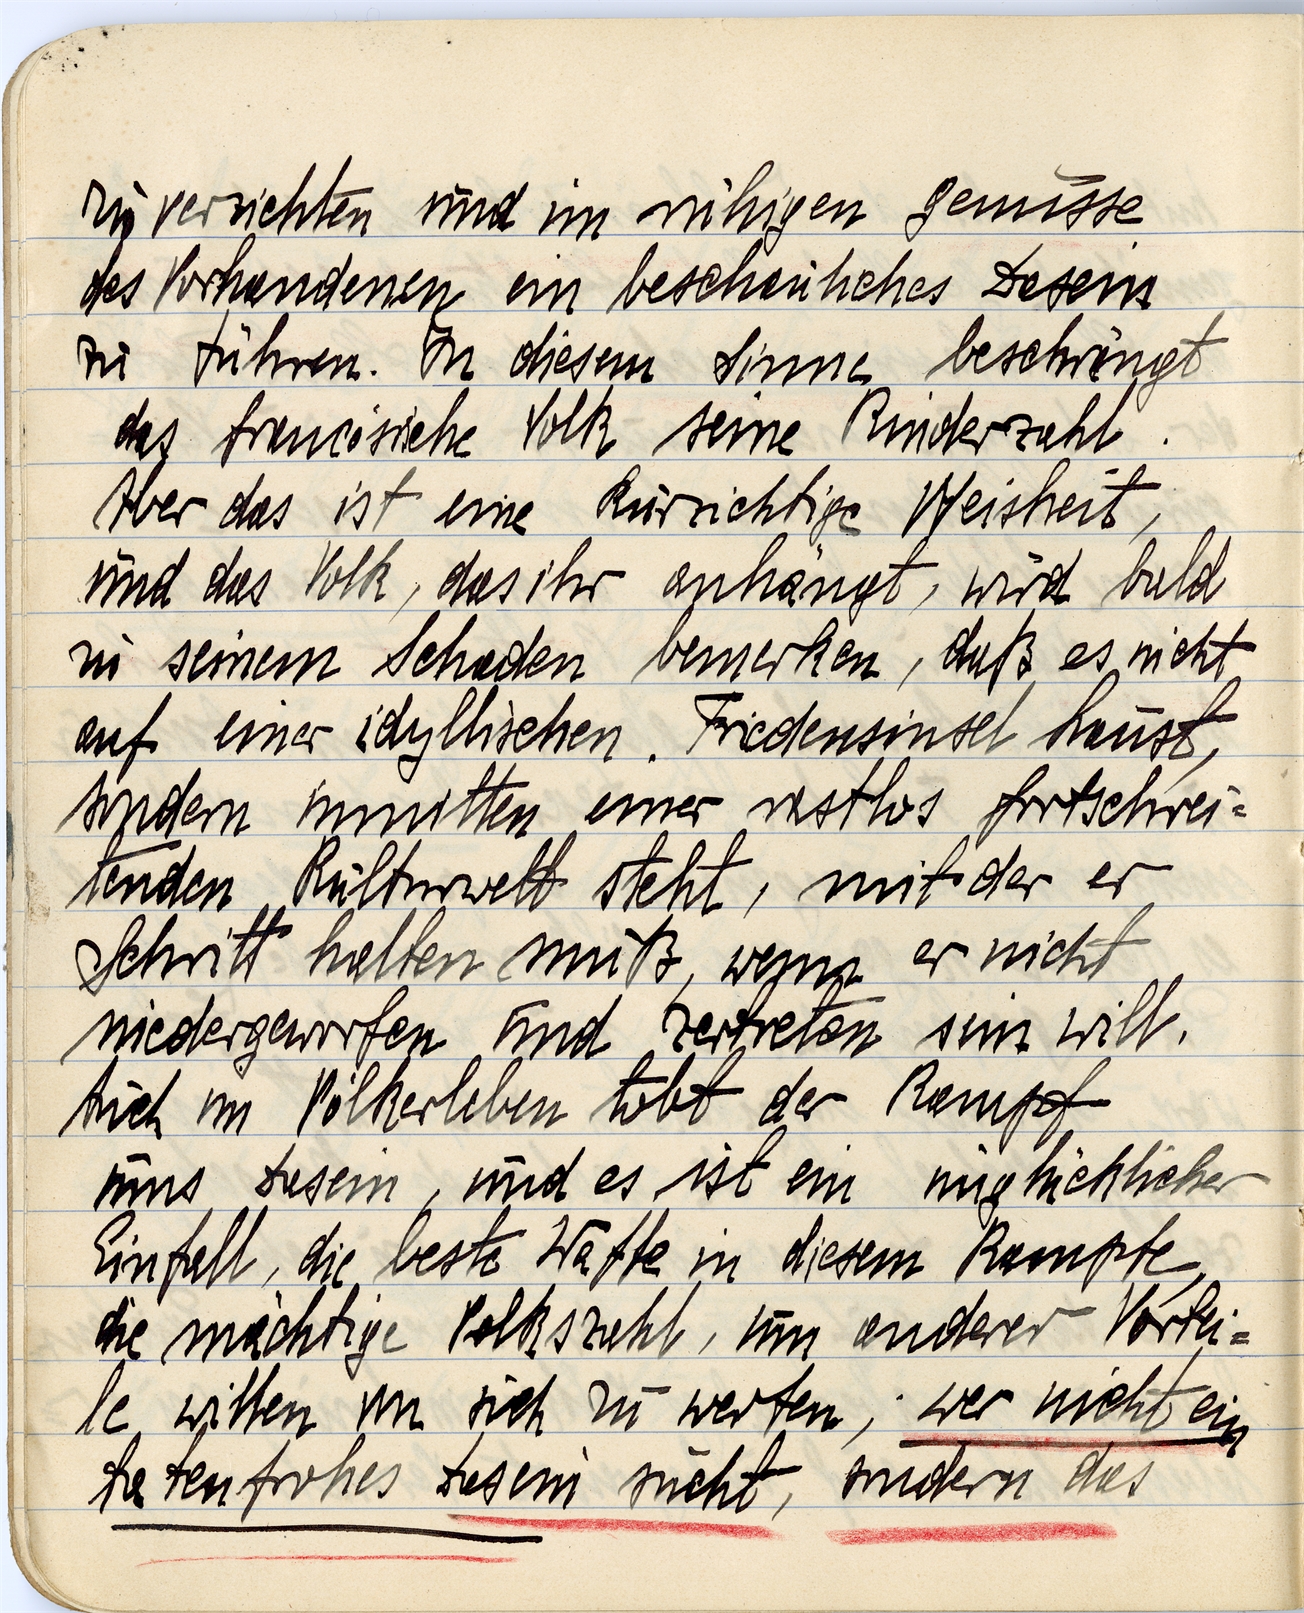 zu verzichten und im ruhigen Genusse
des Vorhandenen ein beschauliches Dasein
zu führen. In diesem Sinne beschrängt
das francösiche Volk seine Kinderzahl.
Aber das ist eine kurzichtige Weisheit,
und das Volk, das ihr anhängt, wird bald
zu seinem Schaden bemerken, daß es nicht
auf einer idyllischen Friedensinsel haust,
sondern inmitten einer rastlos fortschrei=
tenden Kulturwelt steht, mit der er
Schritt halten muß, wenn er nicht
niedergeworfen und zertreten sein will.
Auch im Völkerleben tobt der Kampf
ums Dasein, und es ist ein unglücklicher
Einfall, die beste Waffe in diesem Kampfe,
die mächtige Volkszahl, um anderer Vortei=
le willen von sich zu werfen; wer nicht ein
tatenfrohes Dasein sucht, sondern das